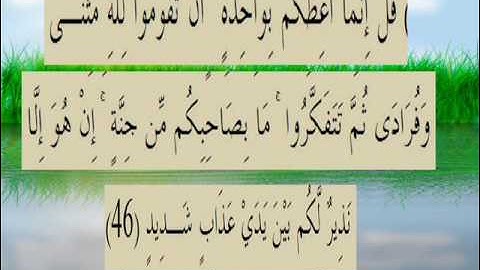 ) قُلْ إِنَّمَا أَعِظُكُم بِوَاحِدَةٍ ۖ أَن تَقُومُوا لِلَّهِ مَثْنَـــى
وَفُرَادَى ثُمَّ تَتَفَكَّرُوا ۚ مَا بِصَاحِبِكُم مِّن جِنَّةٍ ۚ إِنْ هُوَ إِلَّا
نَذِيرٌ لَّكُم بَيْنَ يَدَيْ عَذَابٍ شَـــدِيدٍ (46)